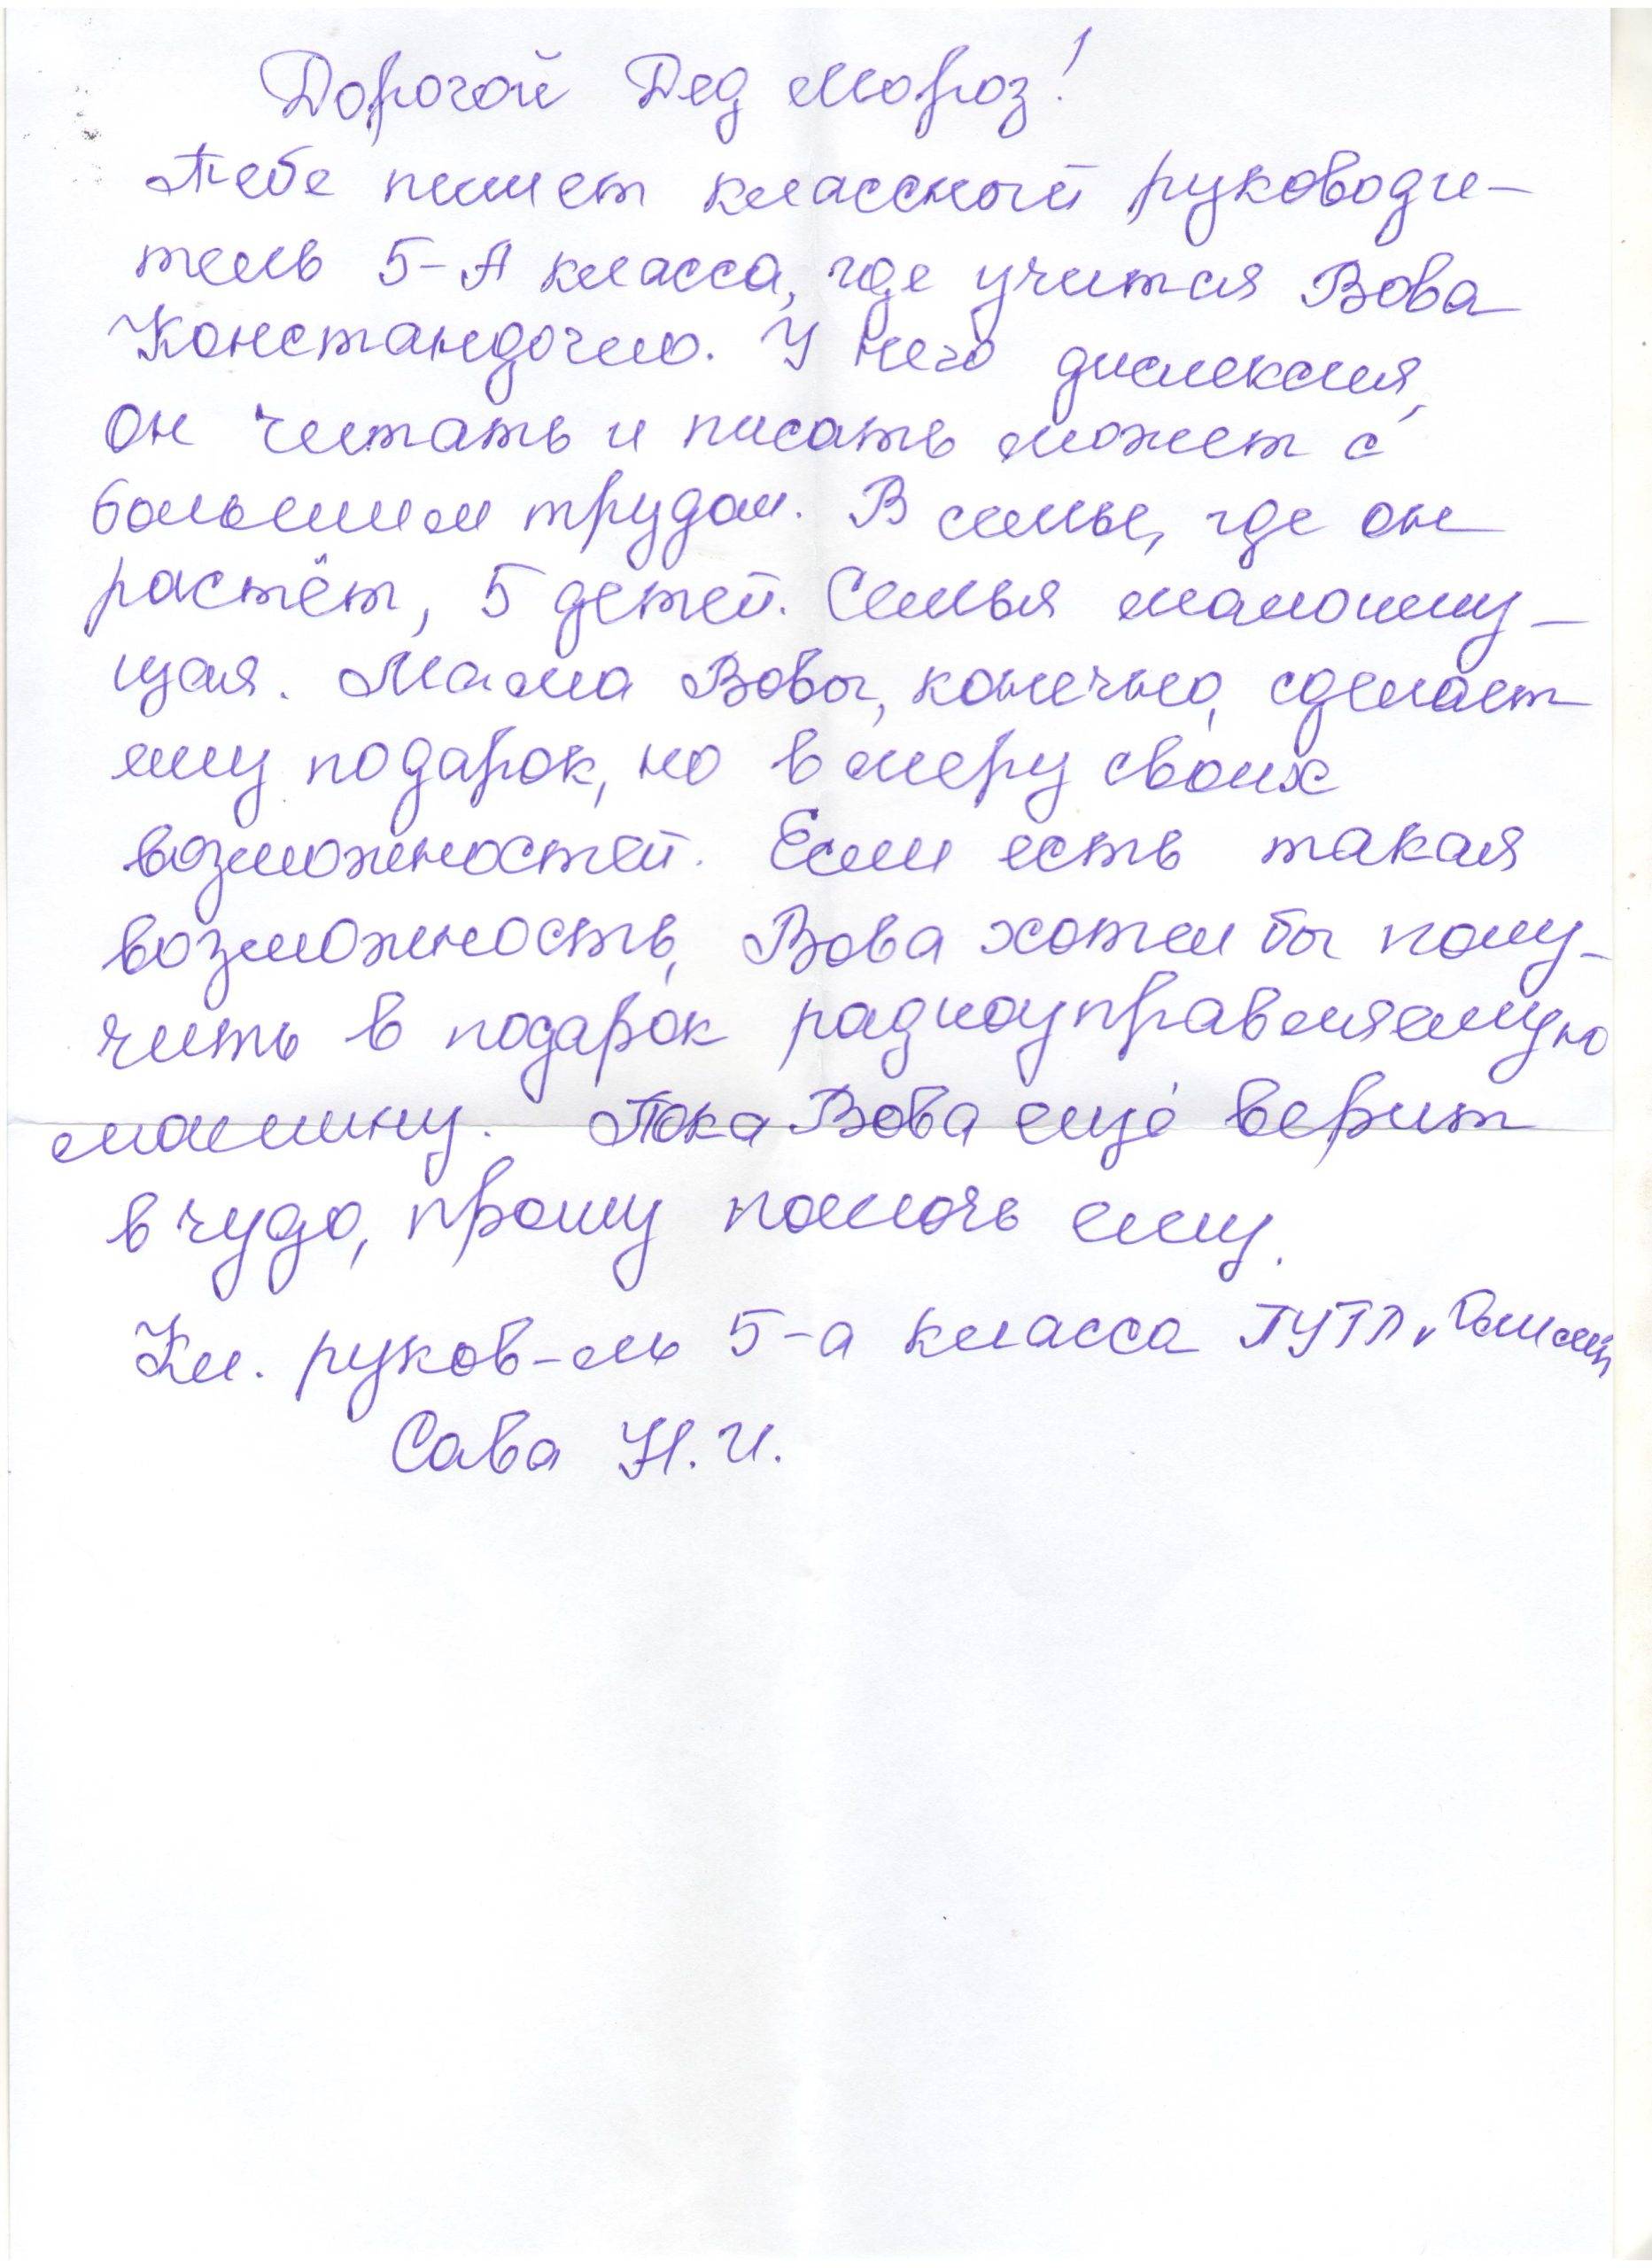 Дорогой Дед Мороз!
Тебе пишет классный руководи-
тель 5-А класса, где учится Вова
Константдогло. У него дислексия,
он читать и писать может с
большим трудом. В семье, где он
растёт, 5 детей. Семья малоиму-
щая. Мама Вовы, конечно, сделает
ему подарок, но в меру своих
возможностей. Если есть такая
возможность, Вова хотел бы полу-
чить в подарок радиоуправляемую
машину. Пока Вова ещё верит
в чудо, прошу помочь ему.
Кл. руков-ль 5-а класса ПУТЛ
Сава Н.И.